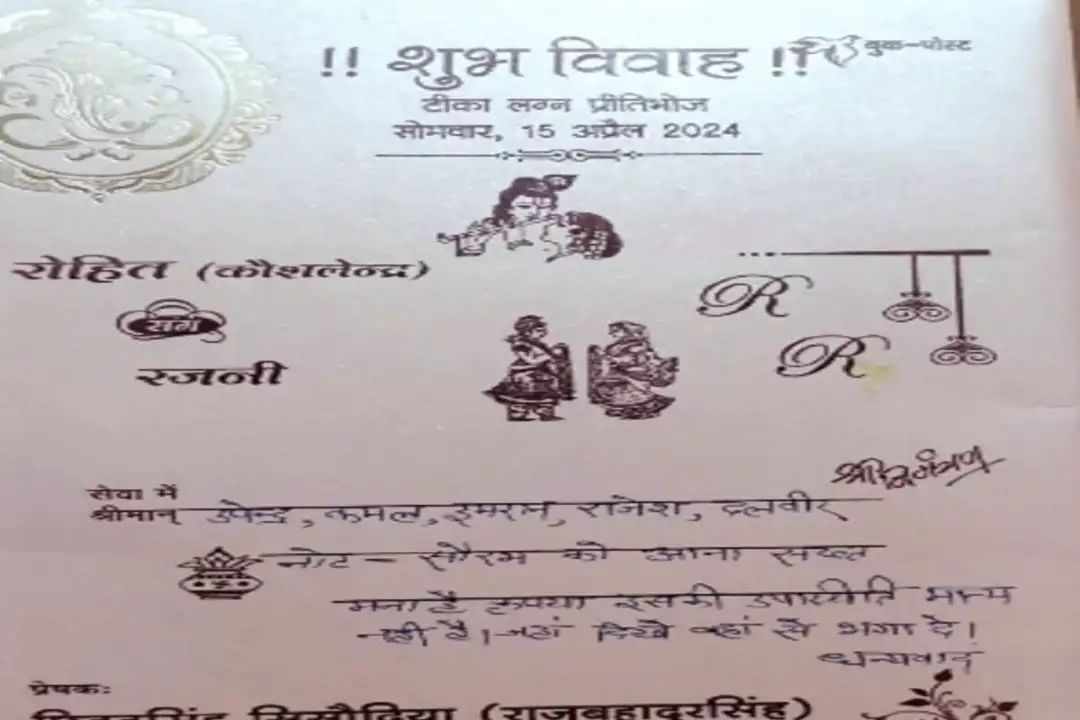 !! शुभ विवाह !!
बुक-पोस्ट
टीका लग्न प्रीतिभोज
सोमवार, 15 अप्रैल 2024
रोहित (कौशलेन्द्र)
संग
रजनी
R
R
श्रीमान्
सेवा में
श्रीमान् उपेन्द्र, कमल, इमरान, राजेश, दलवीर
नोट - सौरभ को आना सख्त
मना है कृपया इसकी उपास्तीति मान्य
नही है। जहां दिखे वहां से भगा दे।
धन्यवाद
प्रेषक:
सिसौदिया (राजबहादुरसिंह)